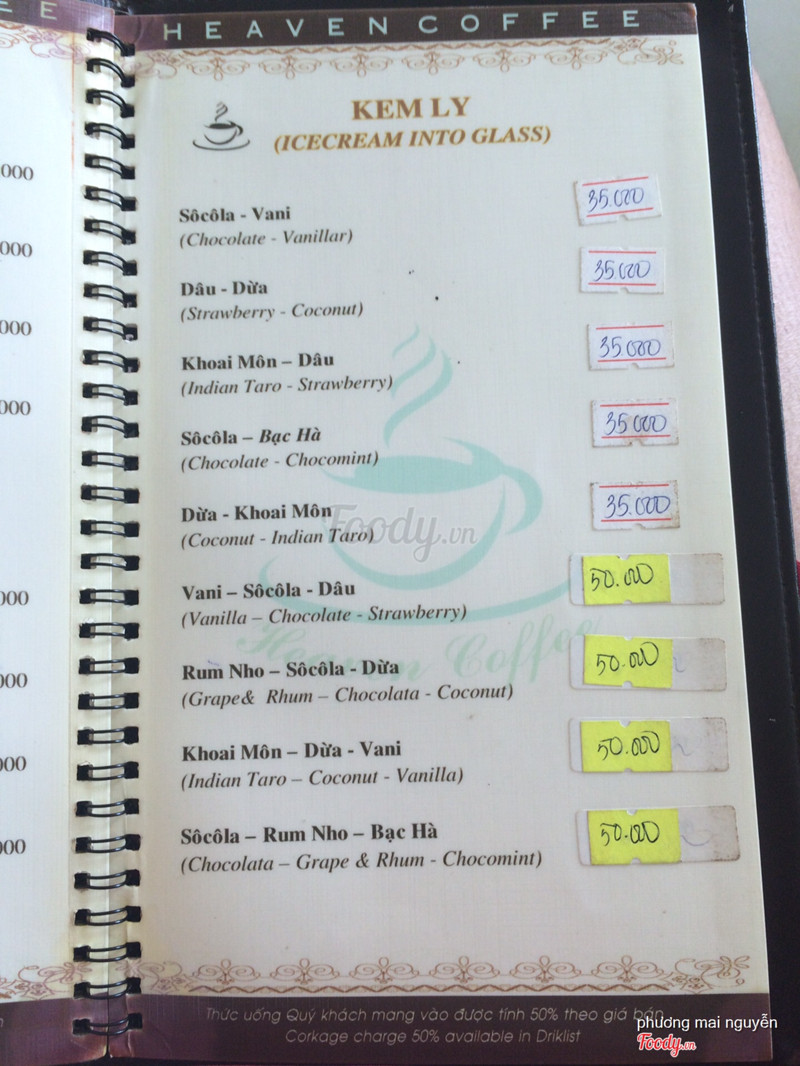 EE
HEAVEN COFFEE
KEM LY
(ICECREAM INTO GLASS)
000
Sôcôla - Vani 35.000
(Chocolate - Vanillar)
000
Dâu - Dừa 35.000
(Strawberry - Coconut)
000
Khoai Môn – Dâu 35.000
(Indian Taro - Strawberry)
000
Sôcôla – Bạc Hà 35.000
(Chocolate - Chocomint)
Dừa - Khoai Môn 35.000
(Coconut - Indian Taro)
Foody.vn
000
Vani – Sôcôla - Dâu 50.000
(Vanilla – Chocolate - Strawberry)
Heaven Coffee
000
Rum Nho – Sôcôla - Dừa 50.000
(Grape& Rhum – Chocolata - Coconut)
000
Khoai Môn – Dừa - Vani 50.000
(Indian Taro – Coconut - Vanilla)
000
Sôcôla – Rum Nho – Bạc Hà 50.000
(Chocolata – Grape & Rhum - Chocomint)
Thức uống Quý khách mang vào được tính 50% theo giá bán
Corkage charge 50% available in Driklist
phương mai nguyễn
Foody.vn